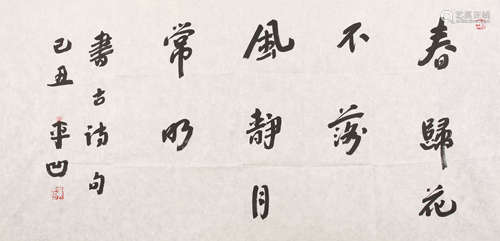 春歸花
不落
風靜月
常明
書古詩句
己丑 平凹